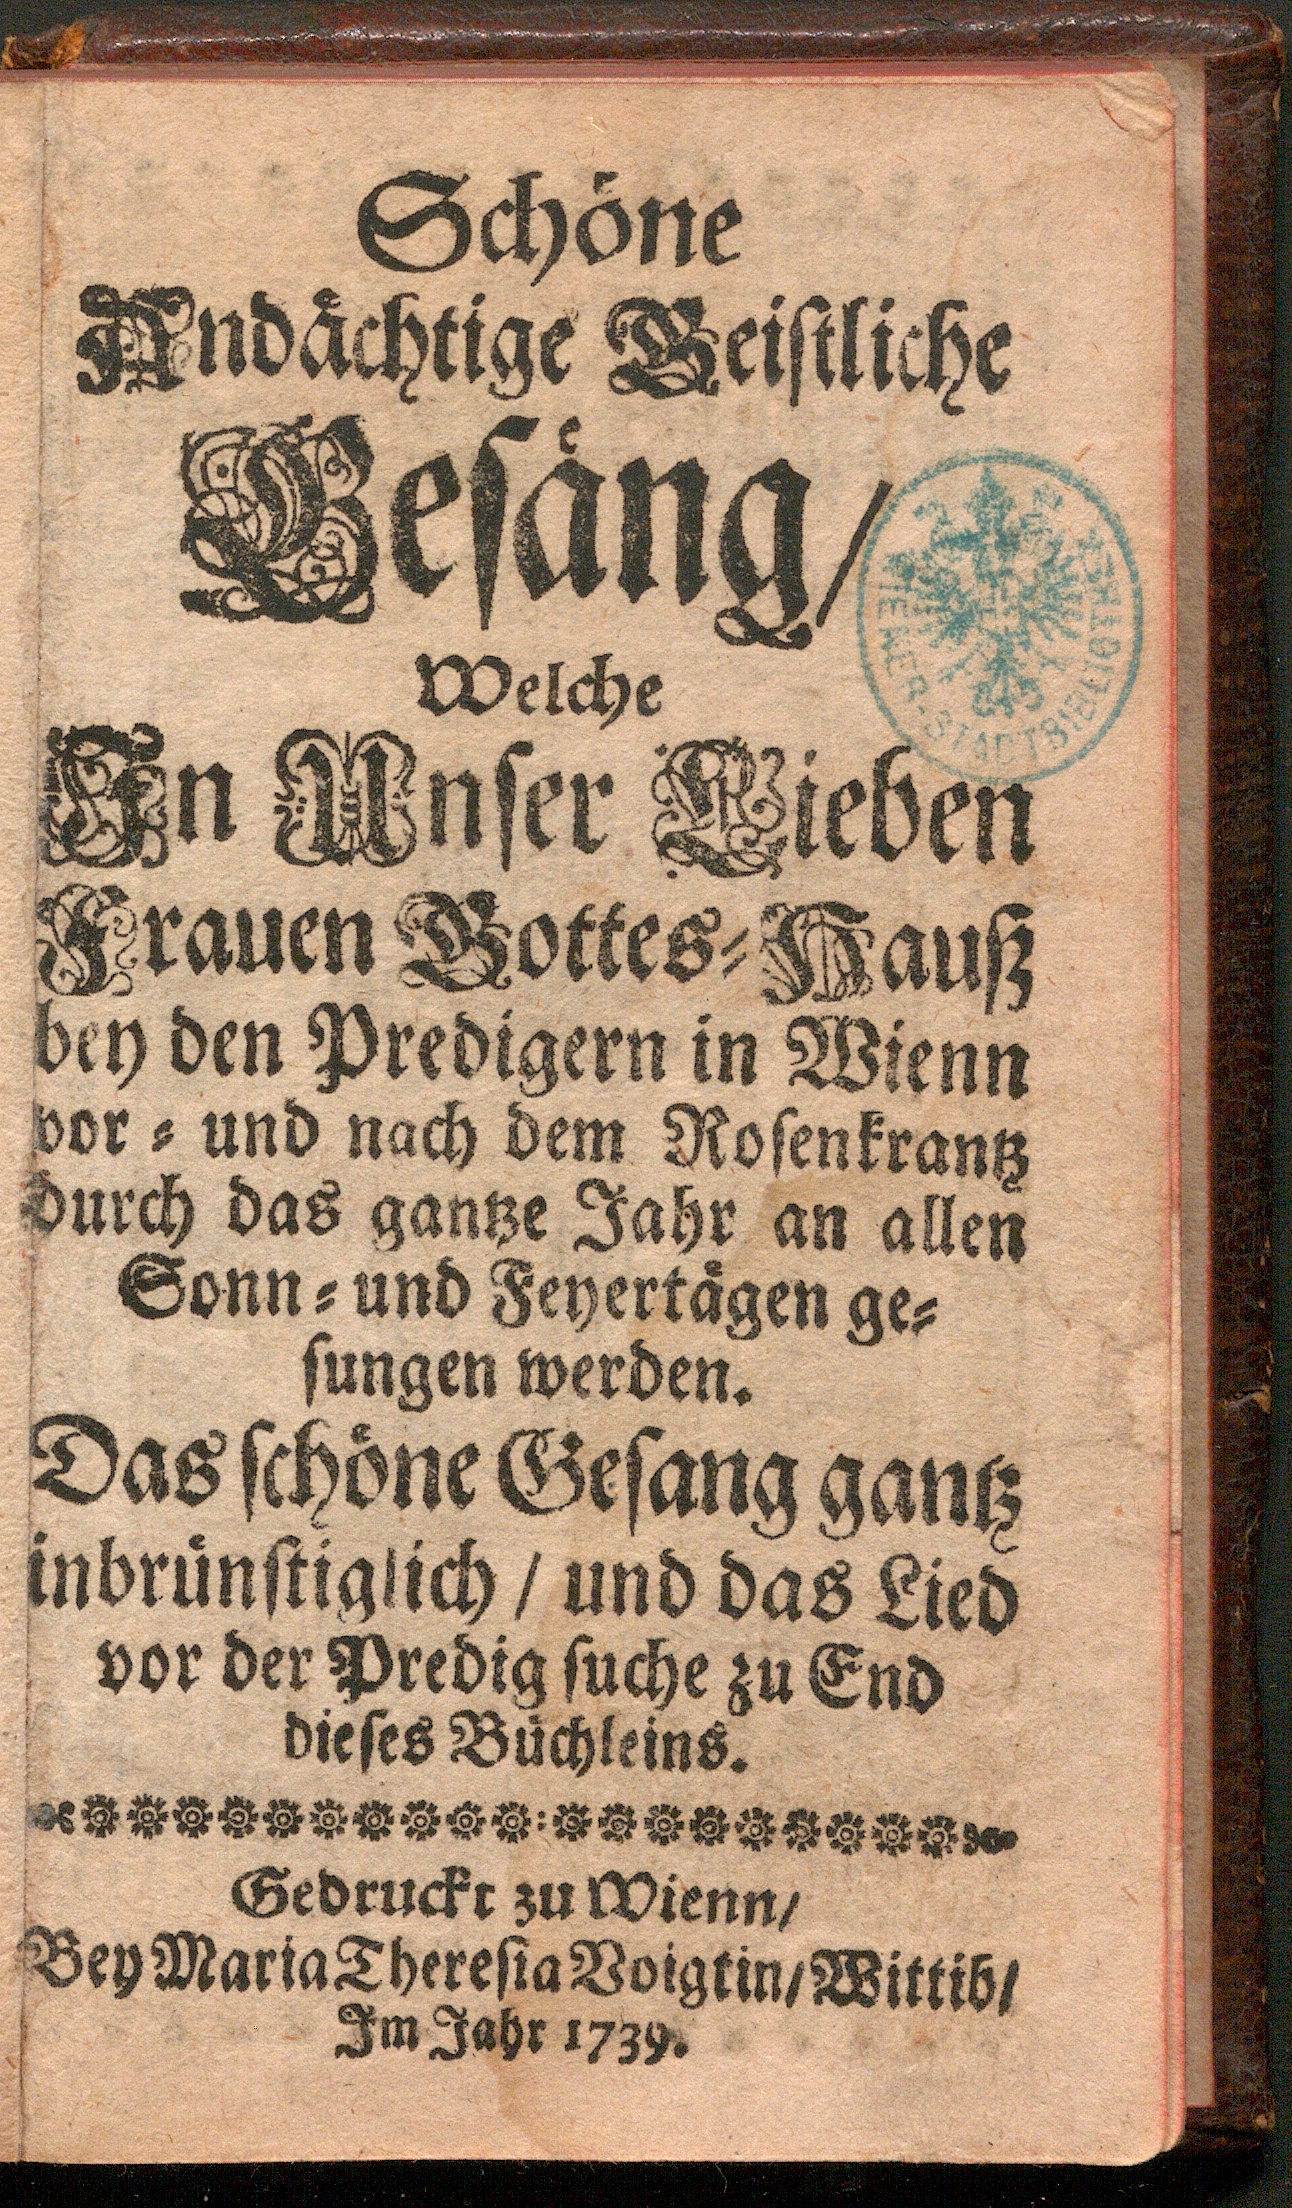 Schöne
Andächtige Geistliche
Gesäng/
Welche
In Unser Lieben
Frauen Gottes-Hauß
bey den Predigern in Wienn
vor- und nach dem Rosenkrantz
durch das gantze Jahr an allen
Sonn- und Feyertägen ge-
sungen werden.
Das schöne Gesang gantz
inbrünstiglich / und das Lied
vor der Predig suche zu End
dieses Büchleins.
Gedruckt zu Wienn/
Bey Maria Theresia Voigtin/ Wittib/
Im Jahr 1739.
WIENER-STADTBIBLIOTHEK